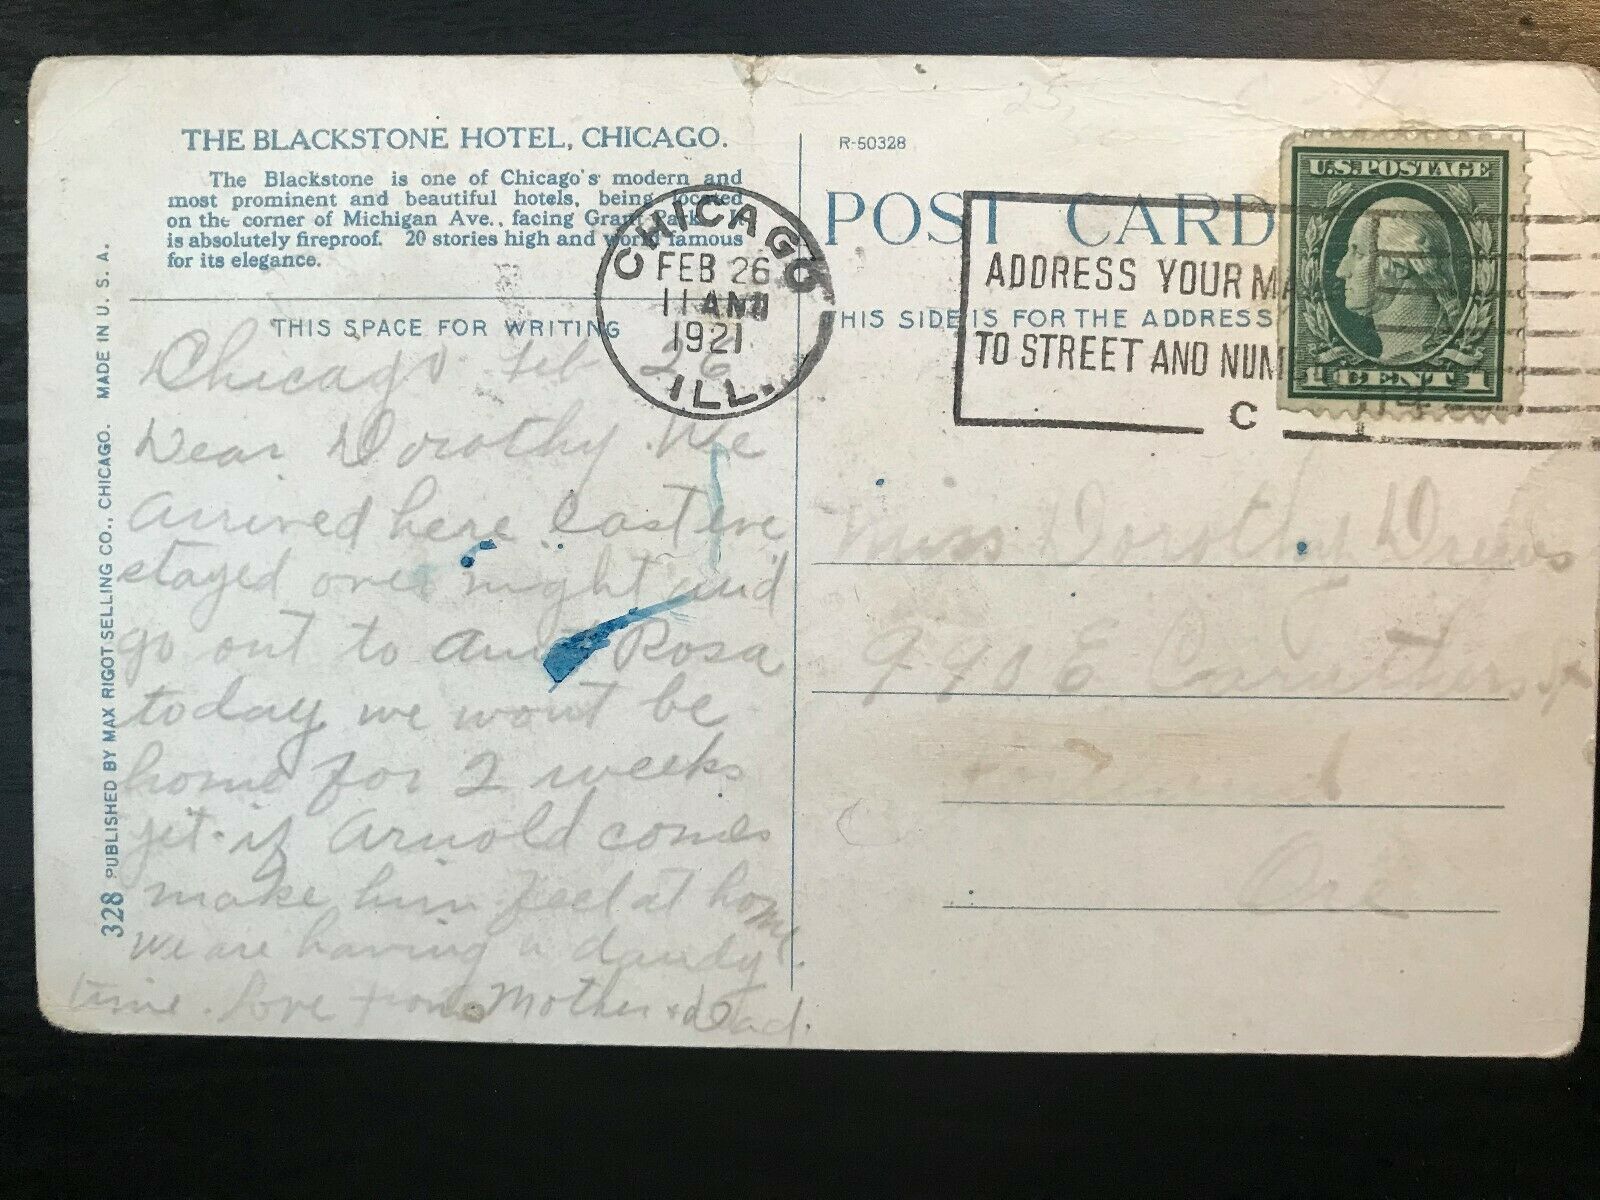 THE BLACKSTONE HOTEL, CHICAGO.
The Blackstone is one of Chicago's modern and
most prominent and beautiful hotels, being located
on the corner of Michigan Ave., facing Grant Park
is absolutely fireproof. 20 stories high and world famous
for its elegance.
THIS SPACE FOR WRITING
Chicago Feb 26
Dear Dorothy We
arrived here last eve
stayed over night and
go out to Rosa
today we wont be
home for 2 weeks
yet. if Arnold comes
make him feel at home
We are having a dandy
time. Love from Mother & Dad.
328 PUBLISHED BY MAX RIGOT SELLING CO., CHICAGO. MADE IN U. S. A.
R-50328
POST CARD
THIS SIDE IS FOR THE ADDRESS
CHICAGO
FEB 26
11 AM
1921
ILL.
ADDRESS YOUR
TO STREET AND
C
U.S. POSTAGE
1 CENT 1
Miss Dorothy
E St
Ore
25